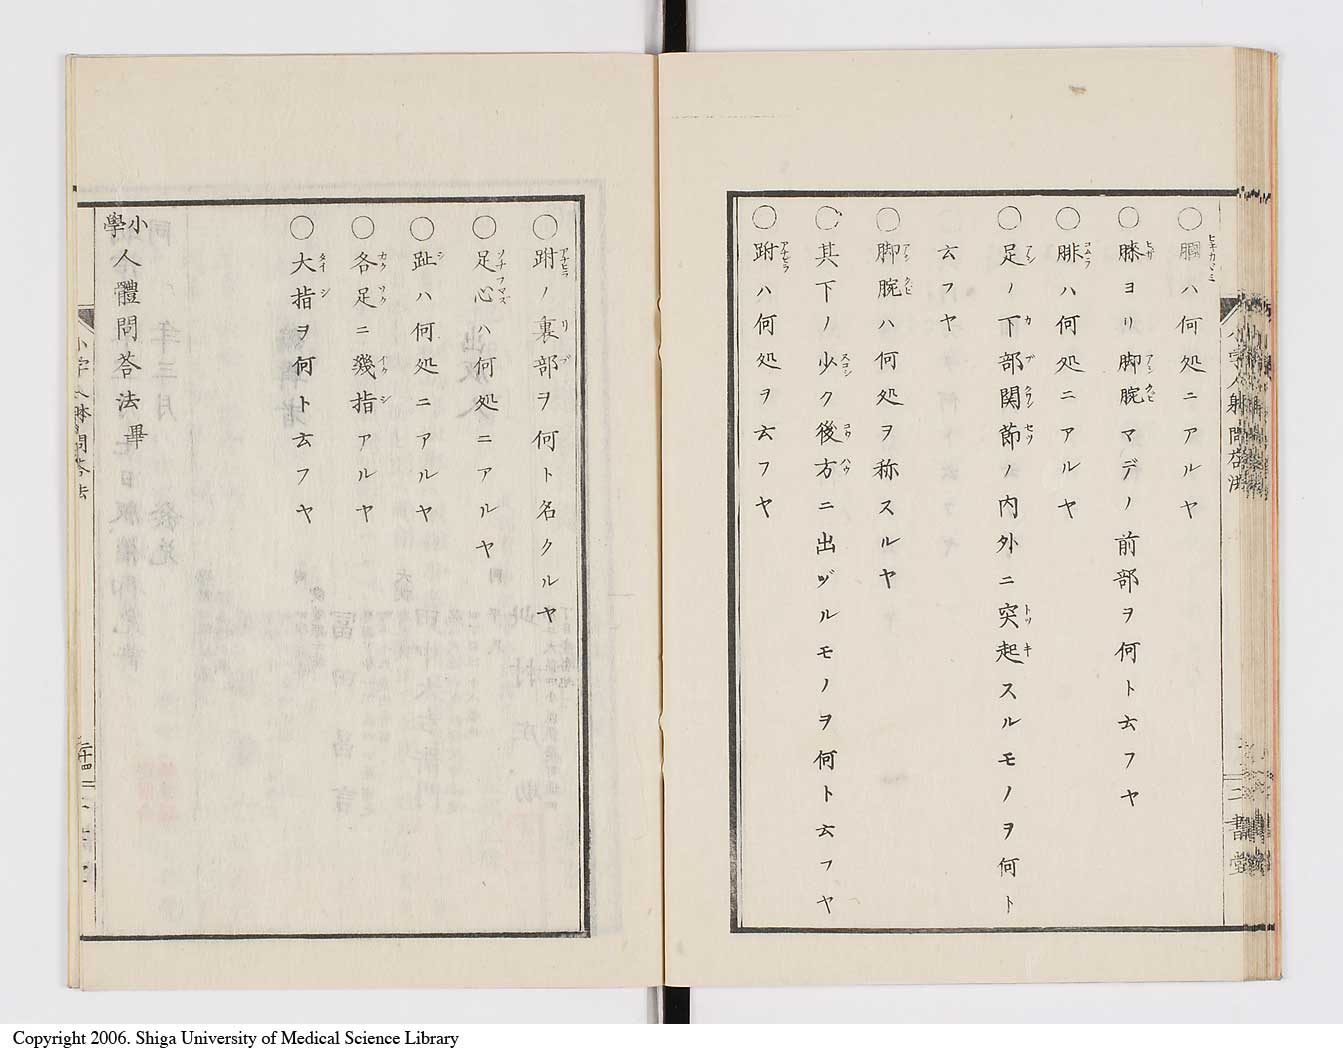 ○膕ハ何処ニアルヤ
○膝ヨリ脚腕マデノ前部ヲ何ト云フヤ
○腓ハ何処ニアルヤ
○足ノ下部関節ノ内外ニ突起スルモノヲ何ト
云フヤ
○脚腕ハ何処ヲ称スルヤ
○其下ノ少ク後方ニ出ヅルモノヲ何ト云フヤ
○跗ハ何処ヲ云フヤ
○跗ノ裏部ヲ何ト名クルヤ
○足心ハ何処ニアルヤ
○趾ハ何処ニアルヤ
○各足ニ幾指アルヤ
○大指ヲ何ト云フヤ
小學人體問荅法畢
小学人躰問答法
二十四
二書堂
Copyright 2006. Shiga University of Medical Science Library